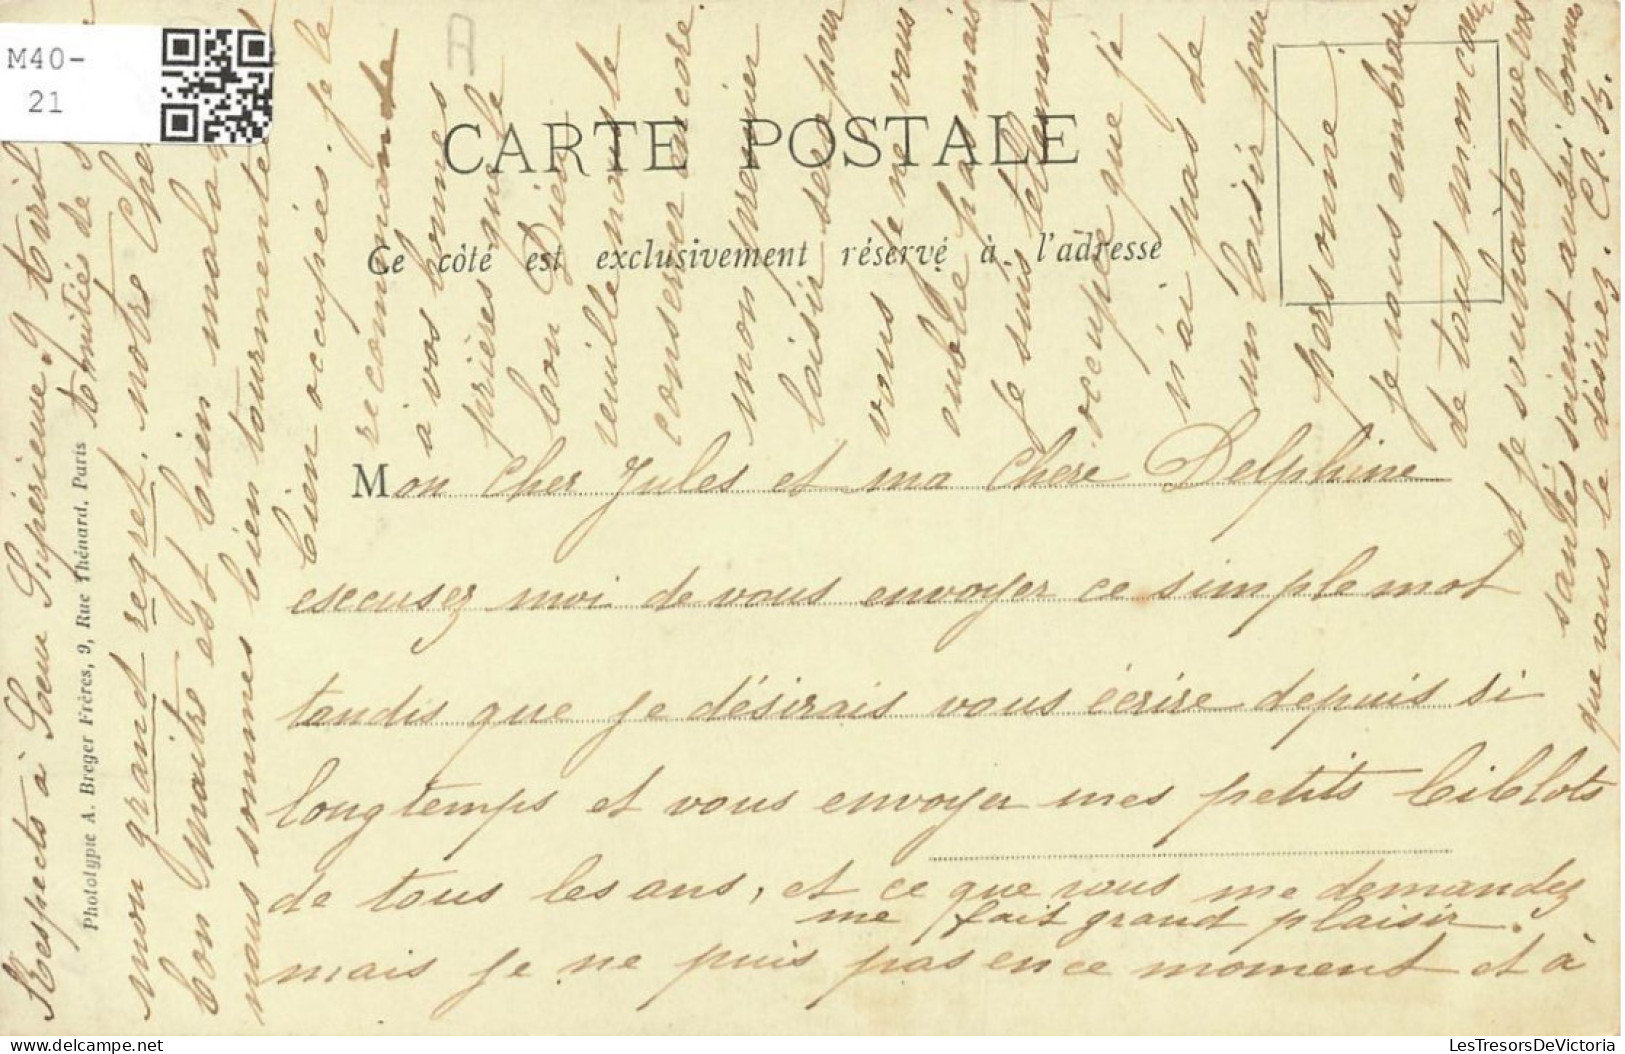 M40-
21
CARTE POSTALE
Ce côté est exclusivement réservé à l'adresse
Mon cher Jules et ma chère Delphine
escusez moi de vous envoyer ce simple mot
tandis que je désirais vous écrire depuis si
longtemps et vous envoyer mes petits biblots
de tous les ans, et ce que vous me demandez
me fait grand plaisir.
mais je ne puis pas en ce moment et à
mon grand regret. notre Che
bon maitre est bien malad
nous sommes bien tourmentée
bien occupées. je le
recommande
à vos bonnes
prières que le
bon Dieu
veuille nous le
conserver encore.
mon premier
loisir sera pour
vous je ne vous
oublie pas mais
je suis tellement
occupée que je
n'ai pas de
un loisir pour
personne.
je vous embrasse
de tout mon cœur
et je souhaite que vos
santés soient aussi bonnes
que vous le désirez. Cl. SS.
Respects à Sœur Supérieure
9 avril
Amitiés de S
Phototypie A. Breger Frères, 9, Rue Thénard, Paris
LesTresorsDeVictoria.com